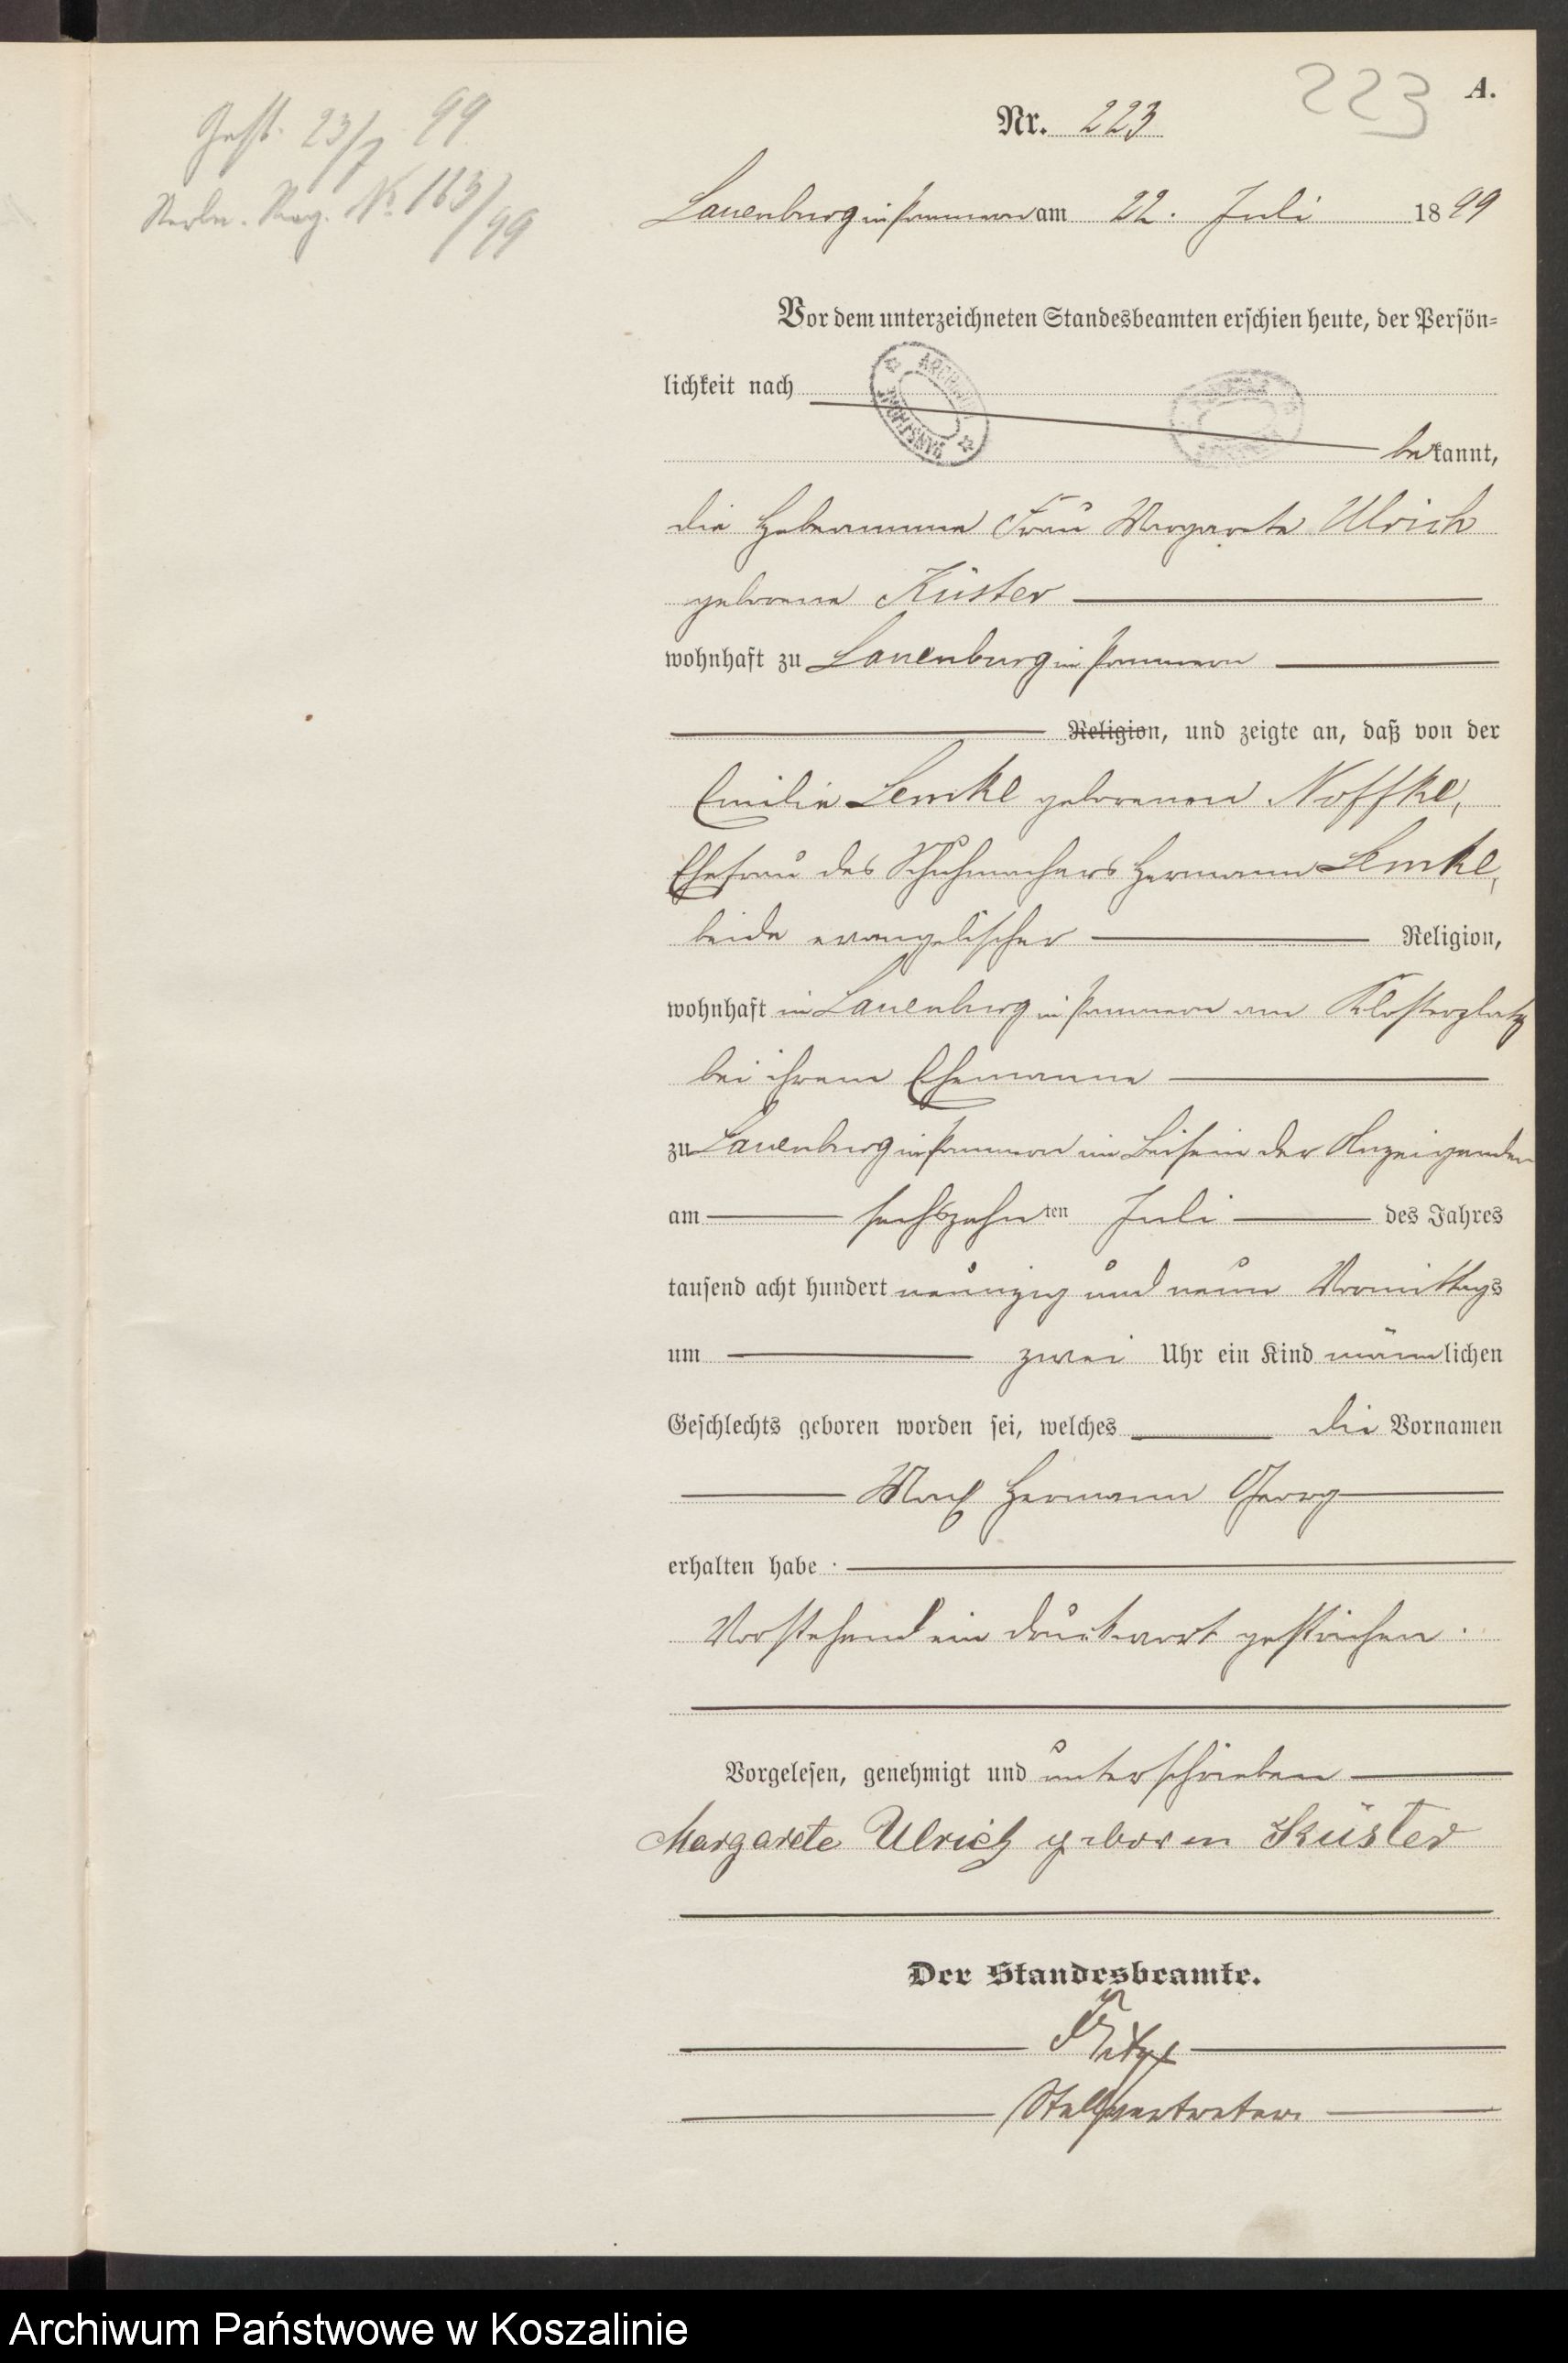 Gest. 23/7 99
Sterbe. Reg. No 163/99
223
A.
Nr. 223
Lauenburg in Pommern am 22. Juli 1899
Vor dem unterzeichneten Standesbeamten erschien heute, der Persön-
lichkeit nach
bekannt,
die Hebeamme Frau Margarete Ulrich
geborene Küster
wohnhaft zu Lauenburg in Pommern
Religion, und zeigte an, daß von der
Emilie Lemke geborenen Noffke,
Ehefrau des Schuhmachers Hermann Lemke,
beide evangelischer Religion,
wohnhaft in Lauenburg in Pommern am Klosterplatz
bei ihrem Ehemanne
zu Lauenburg in Pommern im Beisein der Anzeigenden
am sechszehnten Juli des Jahres
tausend acht hundert neunzig und neun Vormittags
um zwei Uhr ein Kind männlichen
Geschlechts geboren worden sei, welches die Vornamen
Max Hermann Georg
erhalten habe.
Vorstehend ein Druckwort gestrichen.
Vorgelesen, genehmigt und unterschrieben
Margarete Ulrich geboren Küster
Der Standesbeamte.
Stellvertreter.
Archiwum Państwowe w Koszalinie